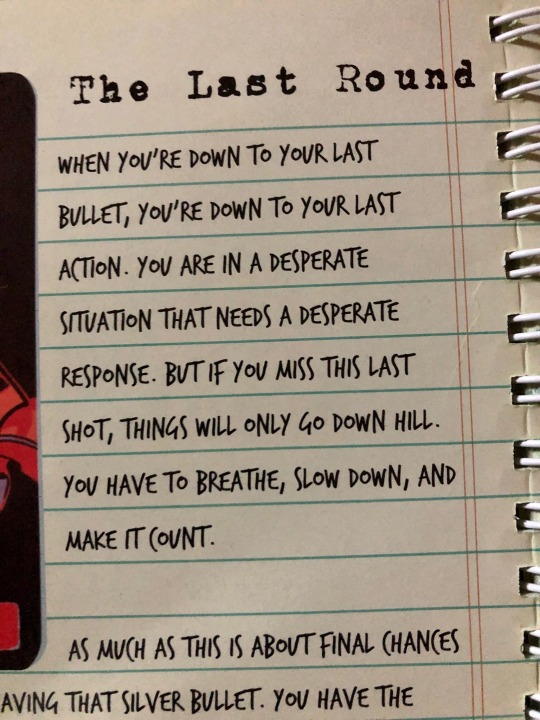 The Last Round
WHEN YOU'RE DOWN TO YOUR LAST
BULLET, YOU'RE DOWN TO YOUR LAST
ACTION. YOU ARE IN A DESPERATE
SITUATION THAT NEEDS A DESPERATE
RESPONSE. BUT IF YOU MISS THIS LAST
SHOT, THINGS WILL ONLY GO DOWN HILL.
YOU HAVE TO BREATHE, SLOW DOWN, AND
MAKE IT COUNT.
AS MUCH AS THIS IS ABOUT FINAL CHANCES
THAT SILVER BULLET. YOU HAVE THE